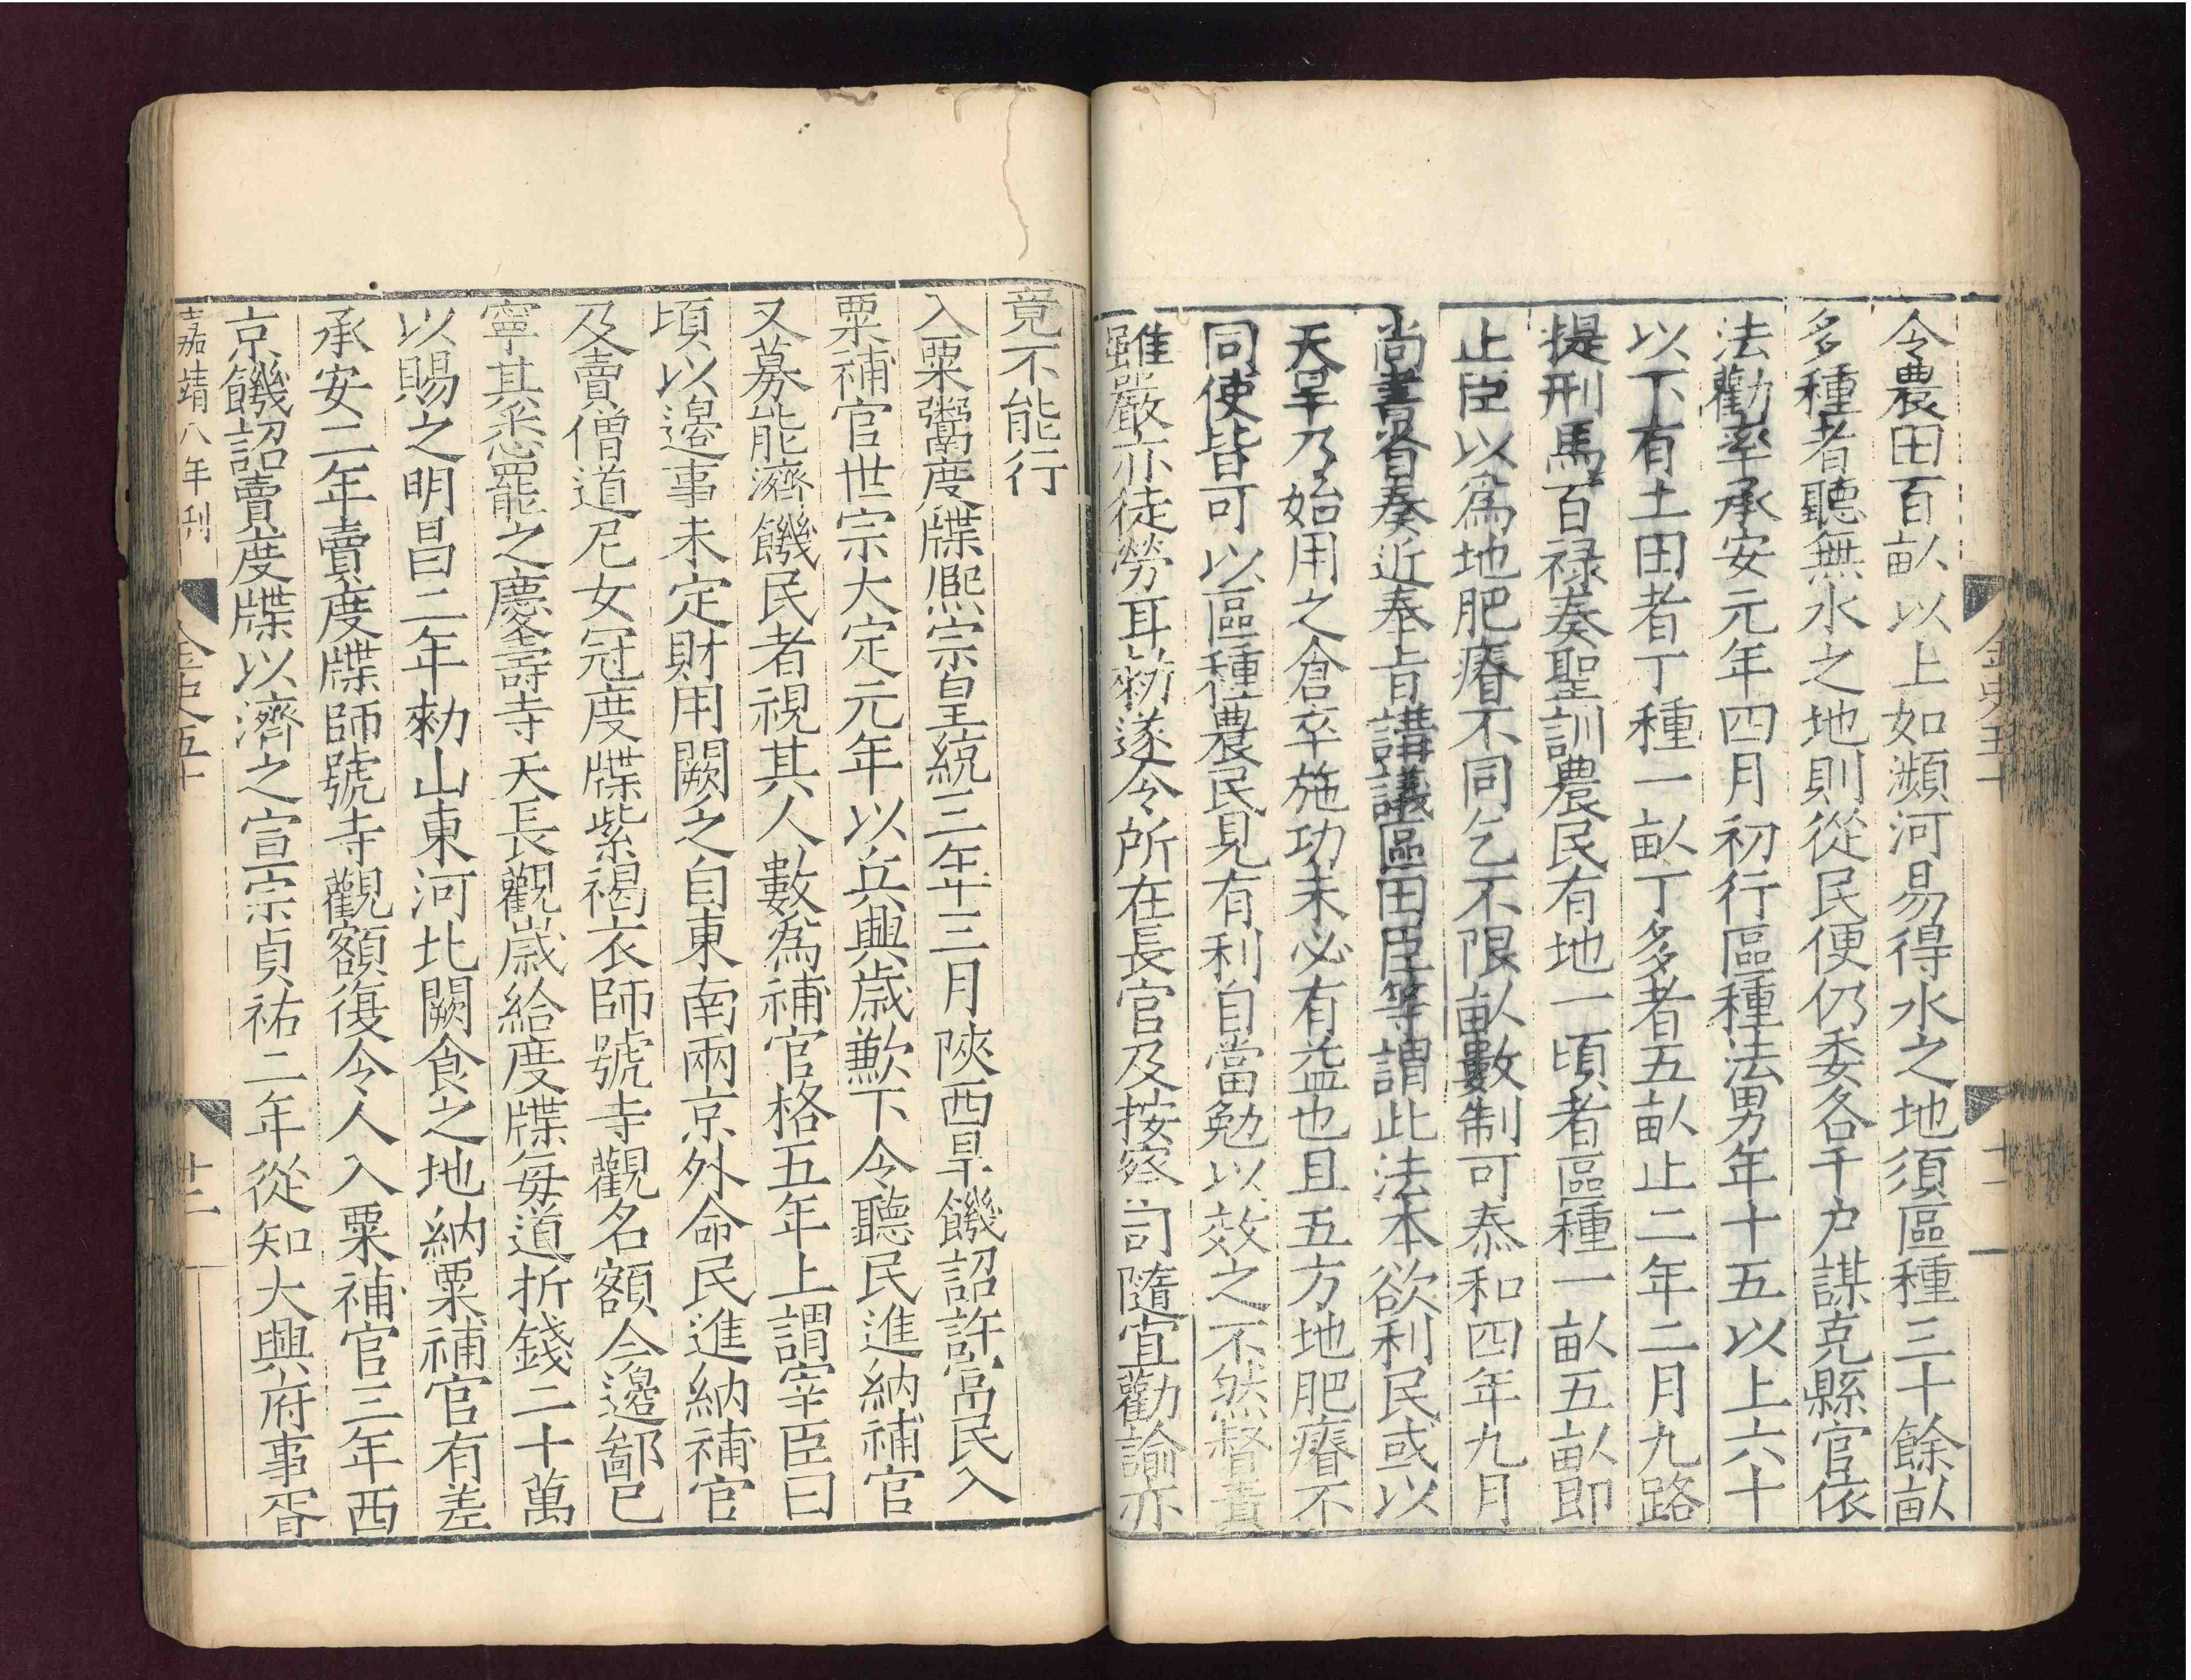 金史五十
十一
令農田百畝以上如瀕河易得水之地須區種三十餘畝
多種者聽無水之地則從民便仍委各千户謀克縣官依
法勸率承安元年四月初行區種法男年十五以上六十
以下有土田者丁種一畝丁多者五畝止二年二月九路
提刑馬百禄奏聖訓農民有地一頃者區種一畝五畝即
止臣以爲地肥瘠不同乞不限畝數制可泰和四年九月
尚書省奏近奉旨講議區田臣等謂此法本欲利民或以
天旱乃始用之倉卒施功未必有益也且五方地肥瘠不
同使皆可以區種農民見有利自當勉以效之不然督責
雖嚴亦徒勞耳勑遂令所在長官及按察司隨宜勸諭亦
竟不能行
入粟鬻度牒熈宗皇統三年三月陝西旱饑詔許富民入
粟補官世宗大定元年以兵興歲歉下令聽民進納補官
又募能濟饑民者視其人數爲補官格五年上謂宰臣曰
頃以邊事未定財用闕乏自東南兩京外命民進納補官
及賣僧道尼女冠度牒紫褐衣師號寺觀名額今邊鄙已
寧其悉罷之慶壽寺天長觀歲給度牒每道折錢二十萬
以賜之明昌二年勑山東河北闕食之地納粟補官有差
承安二年賣度牒師號寺觀額復令人入粟補官三年西
京饑詔賣度牒以濟之宣宗貞祐二年從知大興府事胥
嘉靖八年刊
金史五十
十二